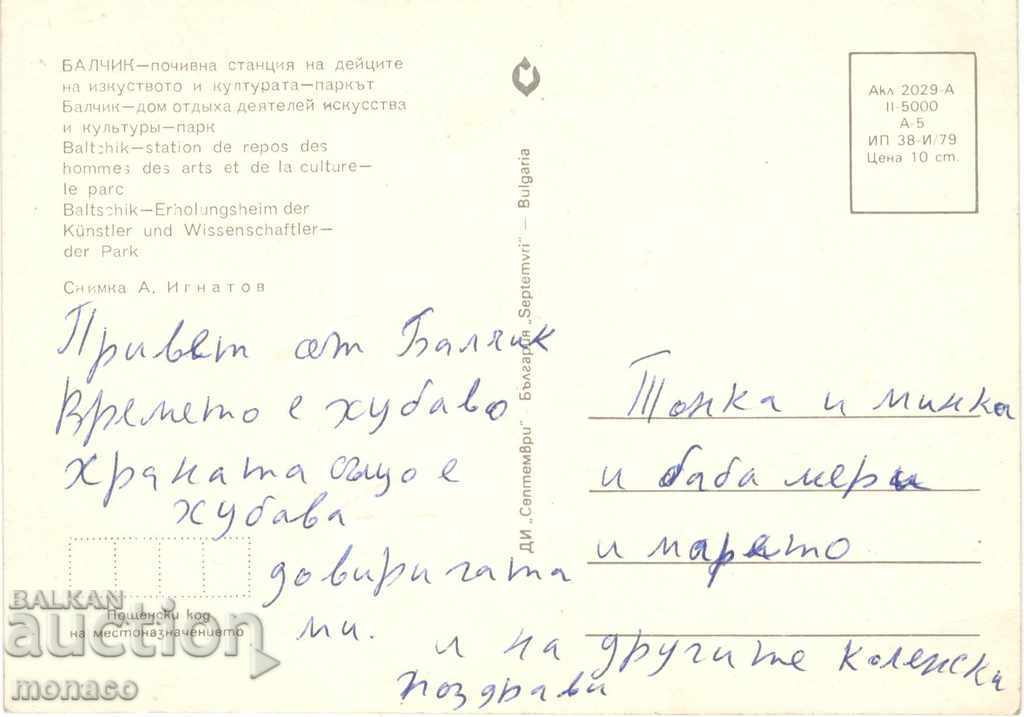 БАЛЧИК—почивна станция на дейците
на изкуството и културата—паркът
Балчик—дом отдыха деятелей искусства
и культуры—парк
Baltchik—station de repos des
hommes des arts et de la culture—
le parc
Baltschik—Erholungsheim der
Künstler und Wissenschaftler—
der Park
Снимка А. Игнатов
Привет от Балчик
Времето е хубаво
храната също е
хубава
ми.
ДИ „Септември" — България „Septemvri" — Bulgaria
Акл 2029-А
II-5000
А-5
ИП 38-И/79
Цена 10 ст.
Тонка и минка
и баба мери
и
и на другите
поздрави
Пощенски код
на местоназначението
BALKAN
auction
monaco